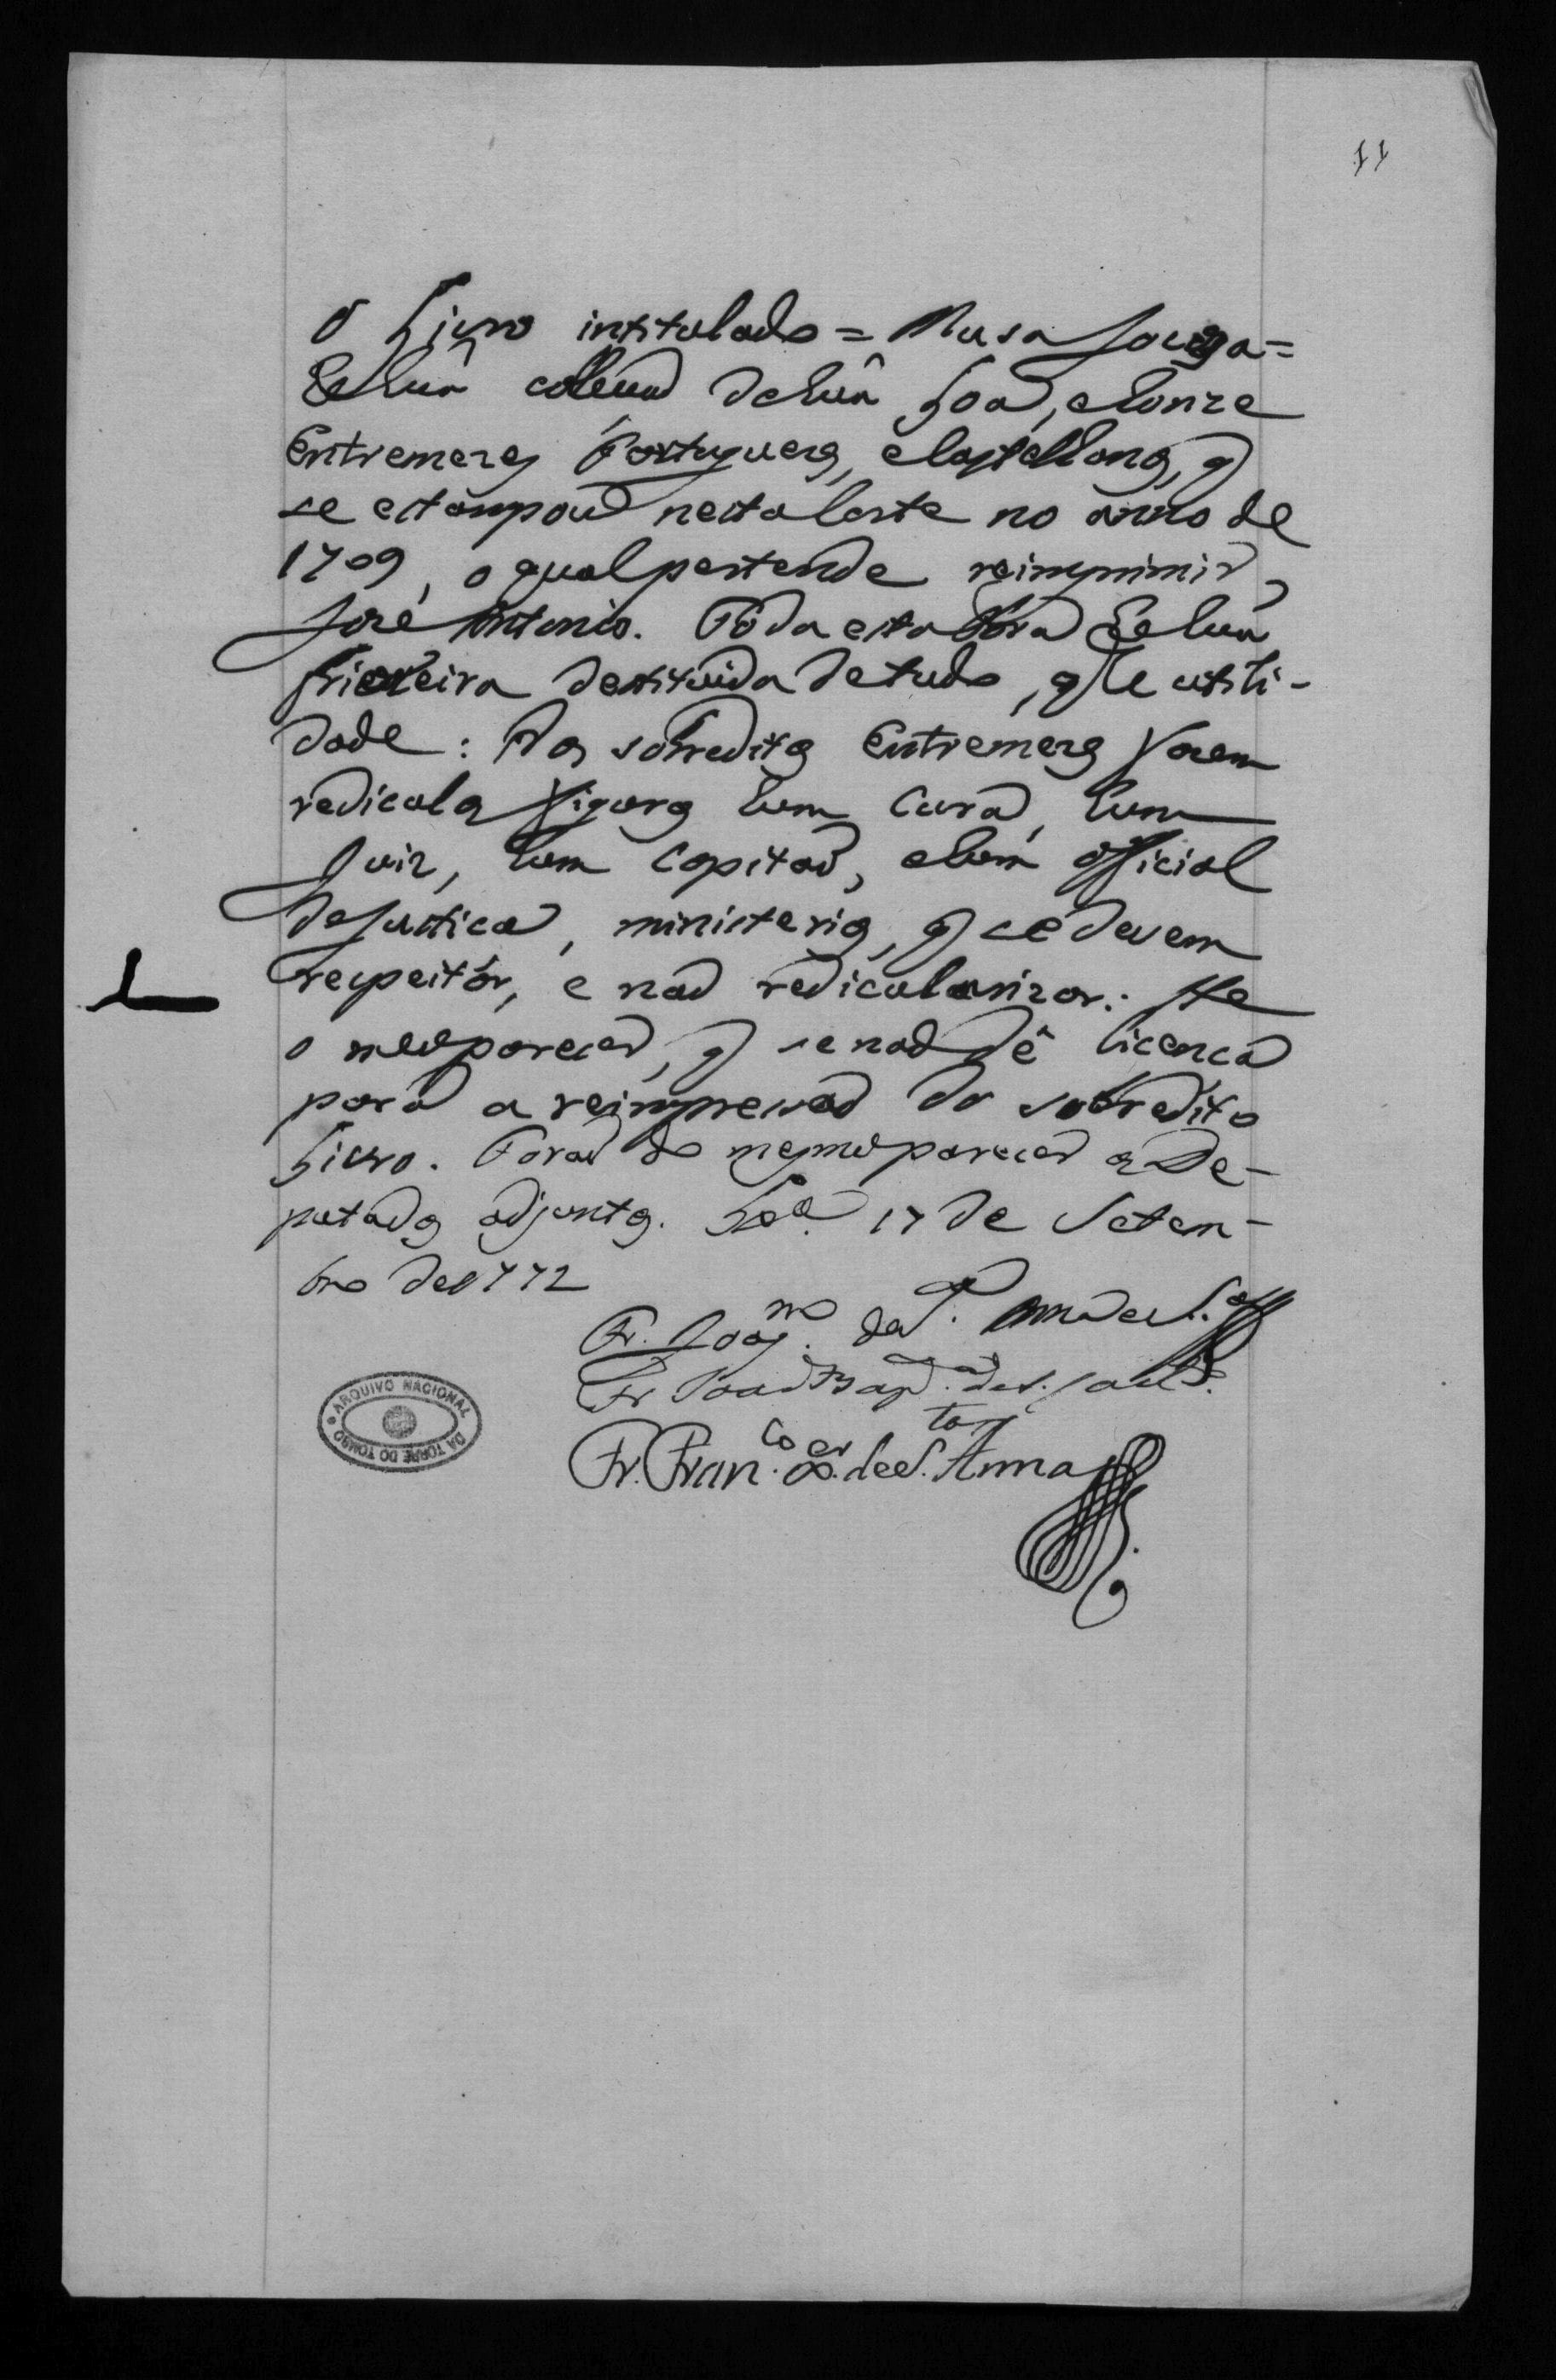 11
O Livro intitulado = Musa Jocoza =
He huã colleçaõ de huã Loa, e honze
Entremezes Portuguezes, e Castelhanos, q
se estampou nesta Corte no anno de
1709, o qual pertende reimprimir
José Antonio. Toda esta Obra he huã
frioleira destituida de tudo, q he utili-
dade: Nos sobreditos Entremezes fazem
redicolas figuras hum Cura, hum
Juiz, hum Capitaõ, e hum official
de Justiça, ministerios, q se devem
respeitár, e naõ redicularizar: He
o meu parecer, q se naõ dê licença
para a reimpressaõ do sobredito
Livro. Foraõ do mesmo parecer os De-
putados adjuntos. Lxª 17 de Setem-
bro de 1772
Fr. Joaqm. de S. Anna e S.ª
Fr Joaõ Bap.ta de S. Caetº.
Fr. Fran.co X.er de S. Anna
ARQUIVO NACIONAL
DA TORRE DO TOMBO